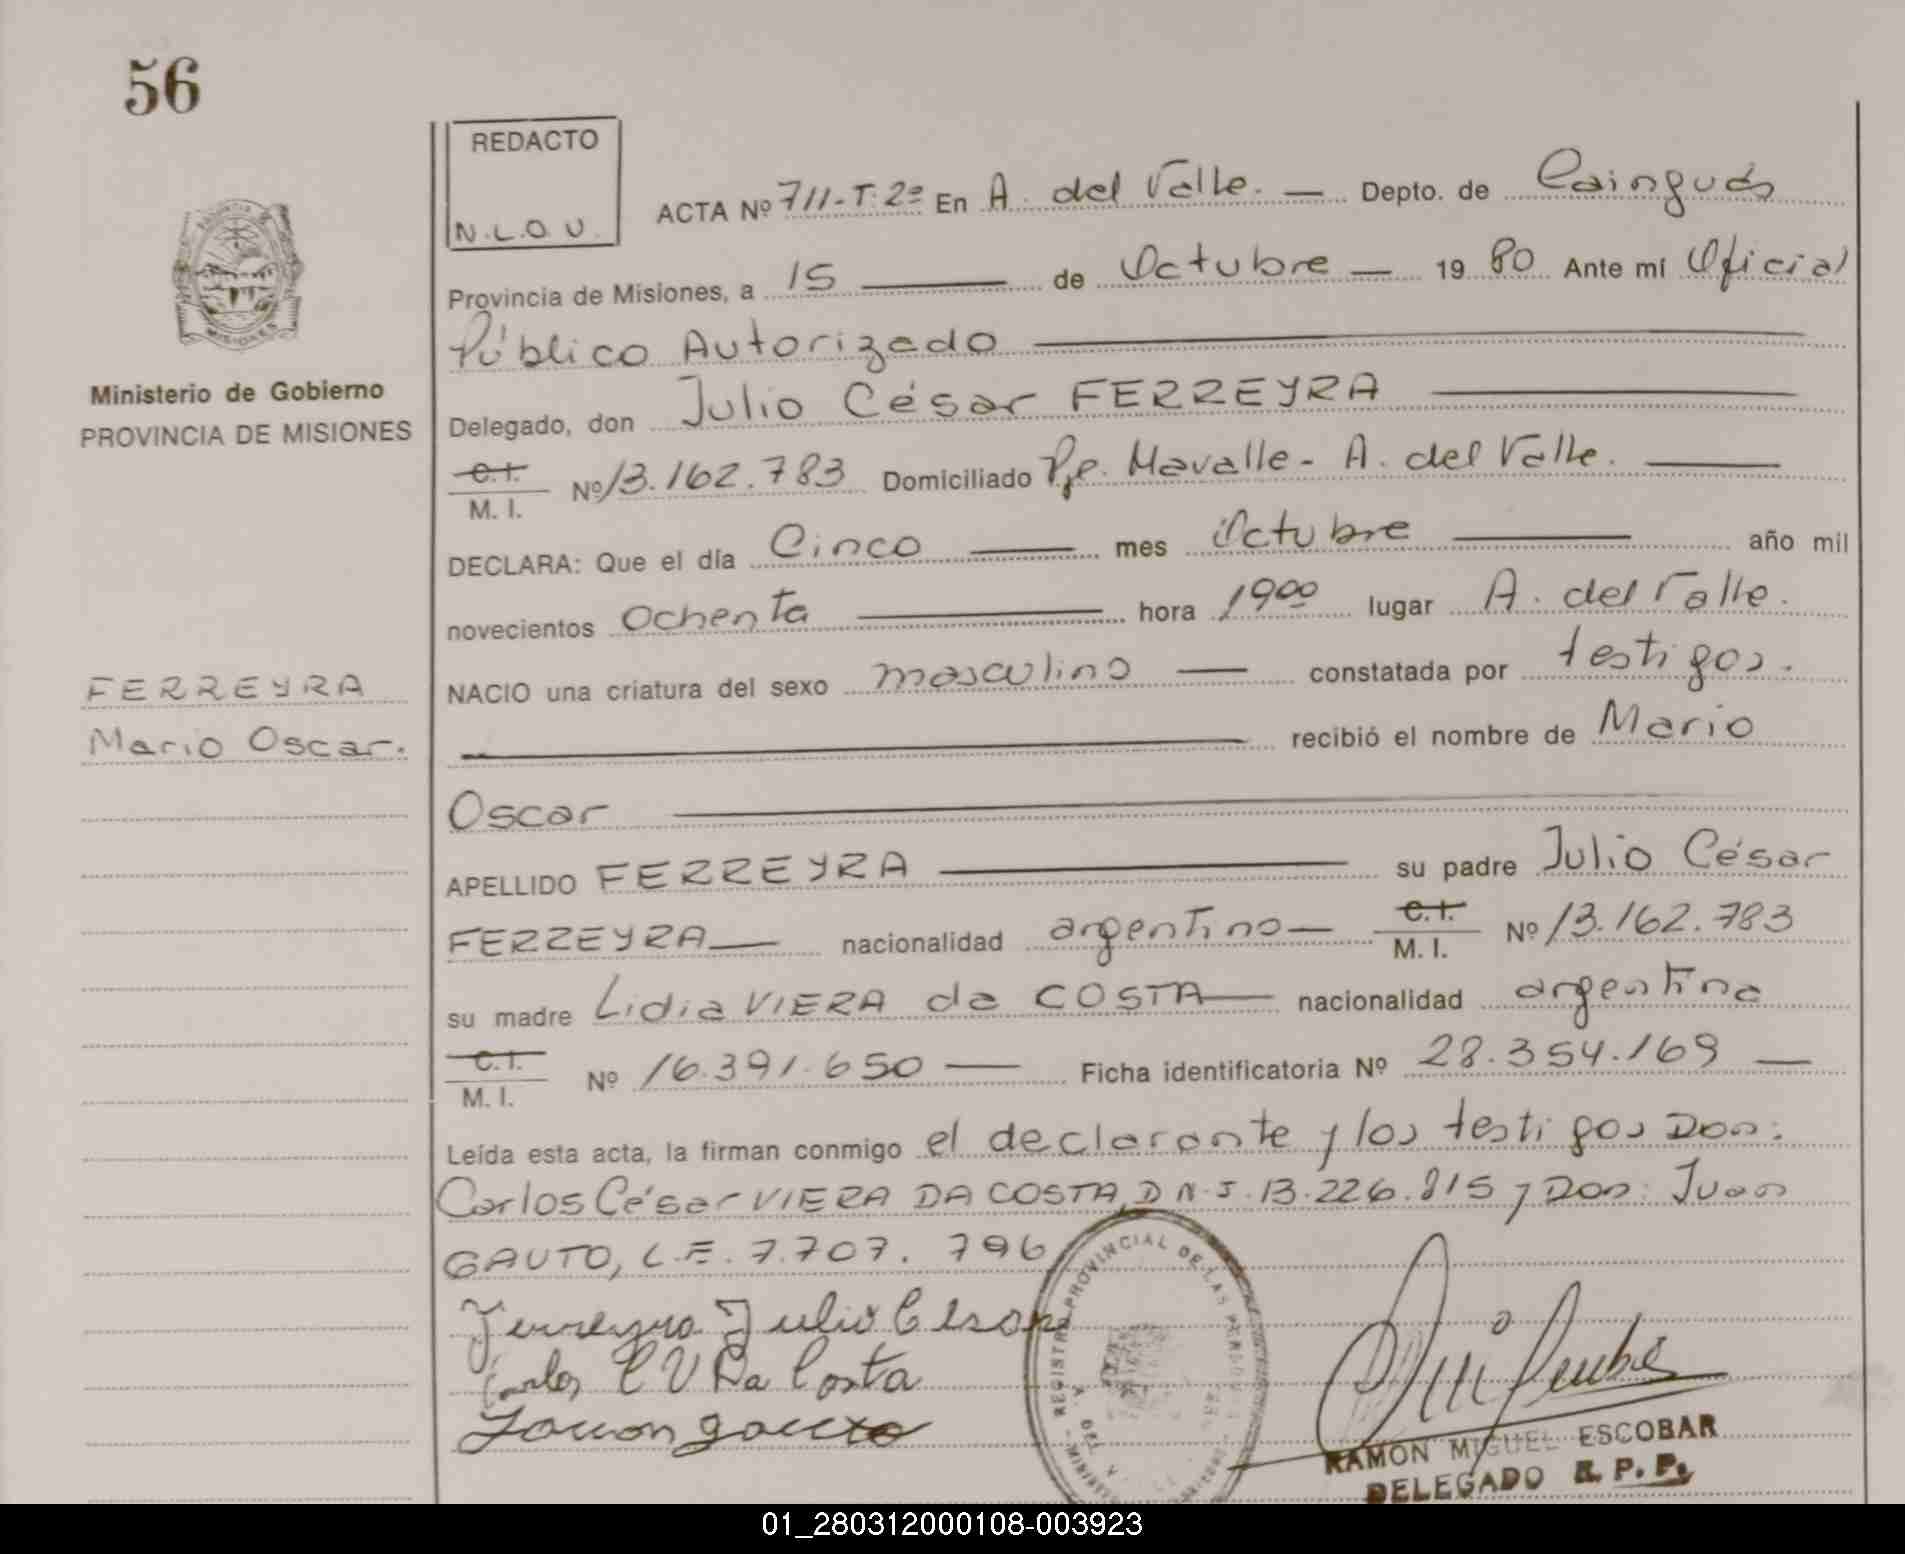 56
REDACTO
N.L.O.U.
ACTA Nº 711-T.2º En A. del Valle. — Depto. de Cainguás
Provincia de Misiones, a 15 — de Octubre — 19 80 Ante mí Oficial
Público Autorizado
Delegado, don Julio César FERREYRA
C.I. M.I. Nº 13.162.783 Domiciliado Pje. Mavalle - A. del Valle.
DECLARA: Que el día Cinco — mes Octubre — año mil
novecientos Ochenta — hora 19 00 lugar A. del Valle.
NACIO una criatura del sexo masculino — constatada por testigos.
recibió el nombre de Mario
Oscar
APELLIDO FERREYRA — su padre Julio César
FERREYRA — nacionalidad argentino — C.I. M.I. Nº 13.162.783
su madre Lidia VIERA da COSTA — nacionalidad argentina
C.I. M.I. Nº 16.391.650 — Ficha identificatoria Nº 28.354.169 —
Leída esta acta, la firman conmigo el declarante y los testigos Don:
Carlos César VIERA DA COSTA, D.N.I. 13.226.815 y Don: Juan
GAUTO, L.E. 7.707.796
Ferreyra Julio Cesar
Carlos C V Da Costa
Juan Gauto
REGISTRO PROVINCIAL DE LAS PERSONAS
RAMON MIGUEL ESCOBAR
DELEGADO R. P. P.
MISIONES
Ministerio de Gobierno
PROVINCIA DE MISIONES
FERREYRA
Mario Oscar.
01_280312000108-003923